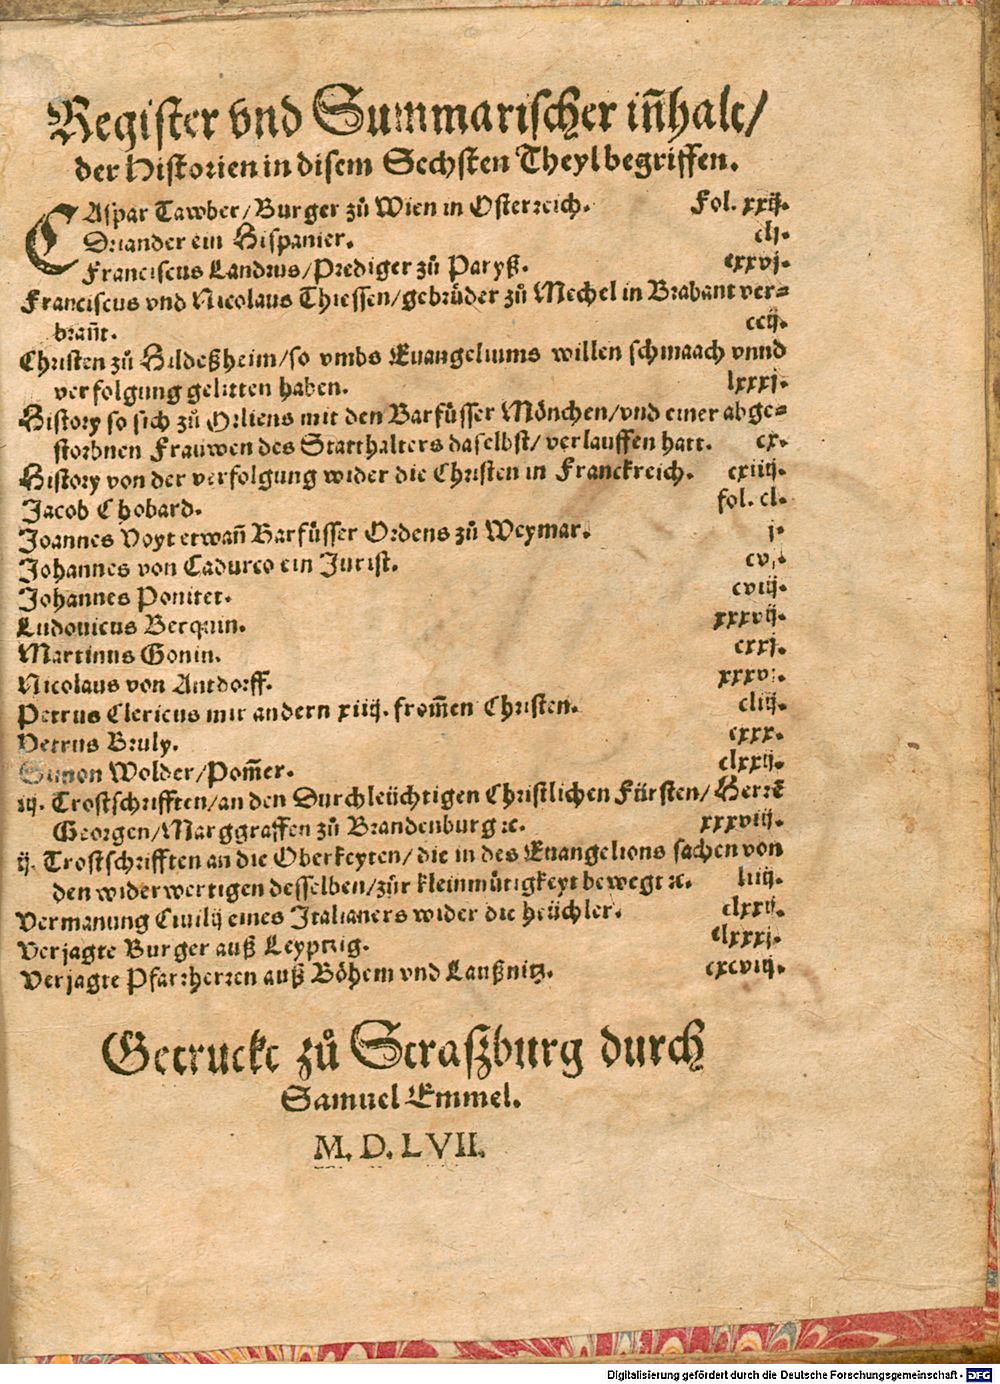 Register vnd Summarischer iñhalt/
der Historien in disem Sechsten Theyl begriffen.
CAspar Tawber/Burger zů Wien in Osterreich. Fol. xxij.
Driander ein Hispanier. clj.
Franciscus Landrus/Prediger zů Paryß. cxxvj.
Franciscus vnd Nicolaus Thiessen/gebrüder zů Mechel in Brabant ver=
brañt. ccij.
Christen zů Hildeßheim/so vmbs Euangeliums willen schmaach vnnd
verfolgung gelitten haben. lxxxj.
History so sich zů Orliens mit den Barfüsser Mönchen/vnd einer abge=
storbnen Frauwen des Statthalters daselbst/verlauffen hatt. cx.
History von der verfolgung wider die Christen in Franckreich. cxiiij.
Jacob Chobard. fol. cl.
Joannes Voyt etwañ Barfüsser Ordens zů Weymar. j.
Johannes von Cadurco ein Jurist. cvj.
Johannes Ponitet. cviij.
Ludouicus Berquin. xxxvij.
Martinus Gonin. cxxj.
Nicolaus von Antdorff. xxxvj.
Petrus Clericus mit andern xiiij. from̃en Christen. cliij.
Petrus Bruly. cxxx.
Simon Wolder/Pom̃er. clxxij.
iij. Trostschrifften/an den Durchleüchtigen Christlichen Fürsten/Herrẽ
Georgen/Marggraffen zů Brandenburg ꝛc. xxxviij.
ij. Trostschrifften an die Oberkeyten/die in des Euangelions sachen von
den widerwertigen desselben/zůr kleinmütigkeyt bewegt ꝛc. liiij.
Vermanung Ciuilij eines Italianers wider die heüchler. clxxij.
Verjagte Burger auß Leyptzig. clxxxj.
Verjagte Pfarrherren auß Böhem vnd Laußnitz. cxcviij.
Getruckt zů Straßburg durch
Samuel Emmel.
M. D. LVII.
Digitalisierung gefördert durch die Deutsche Forschungsgemeinschaft - DFG